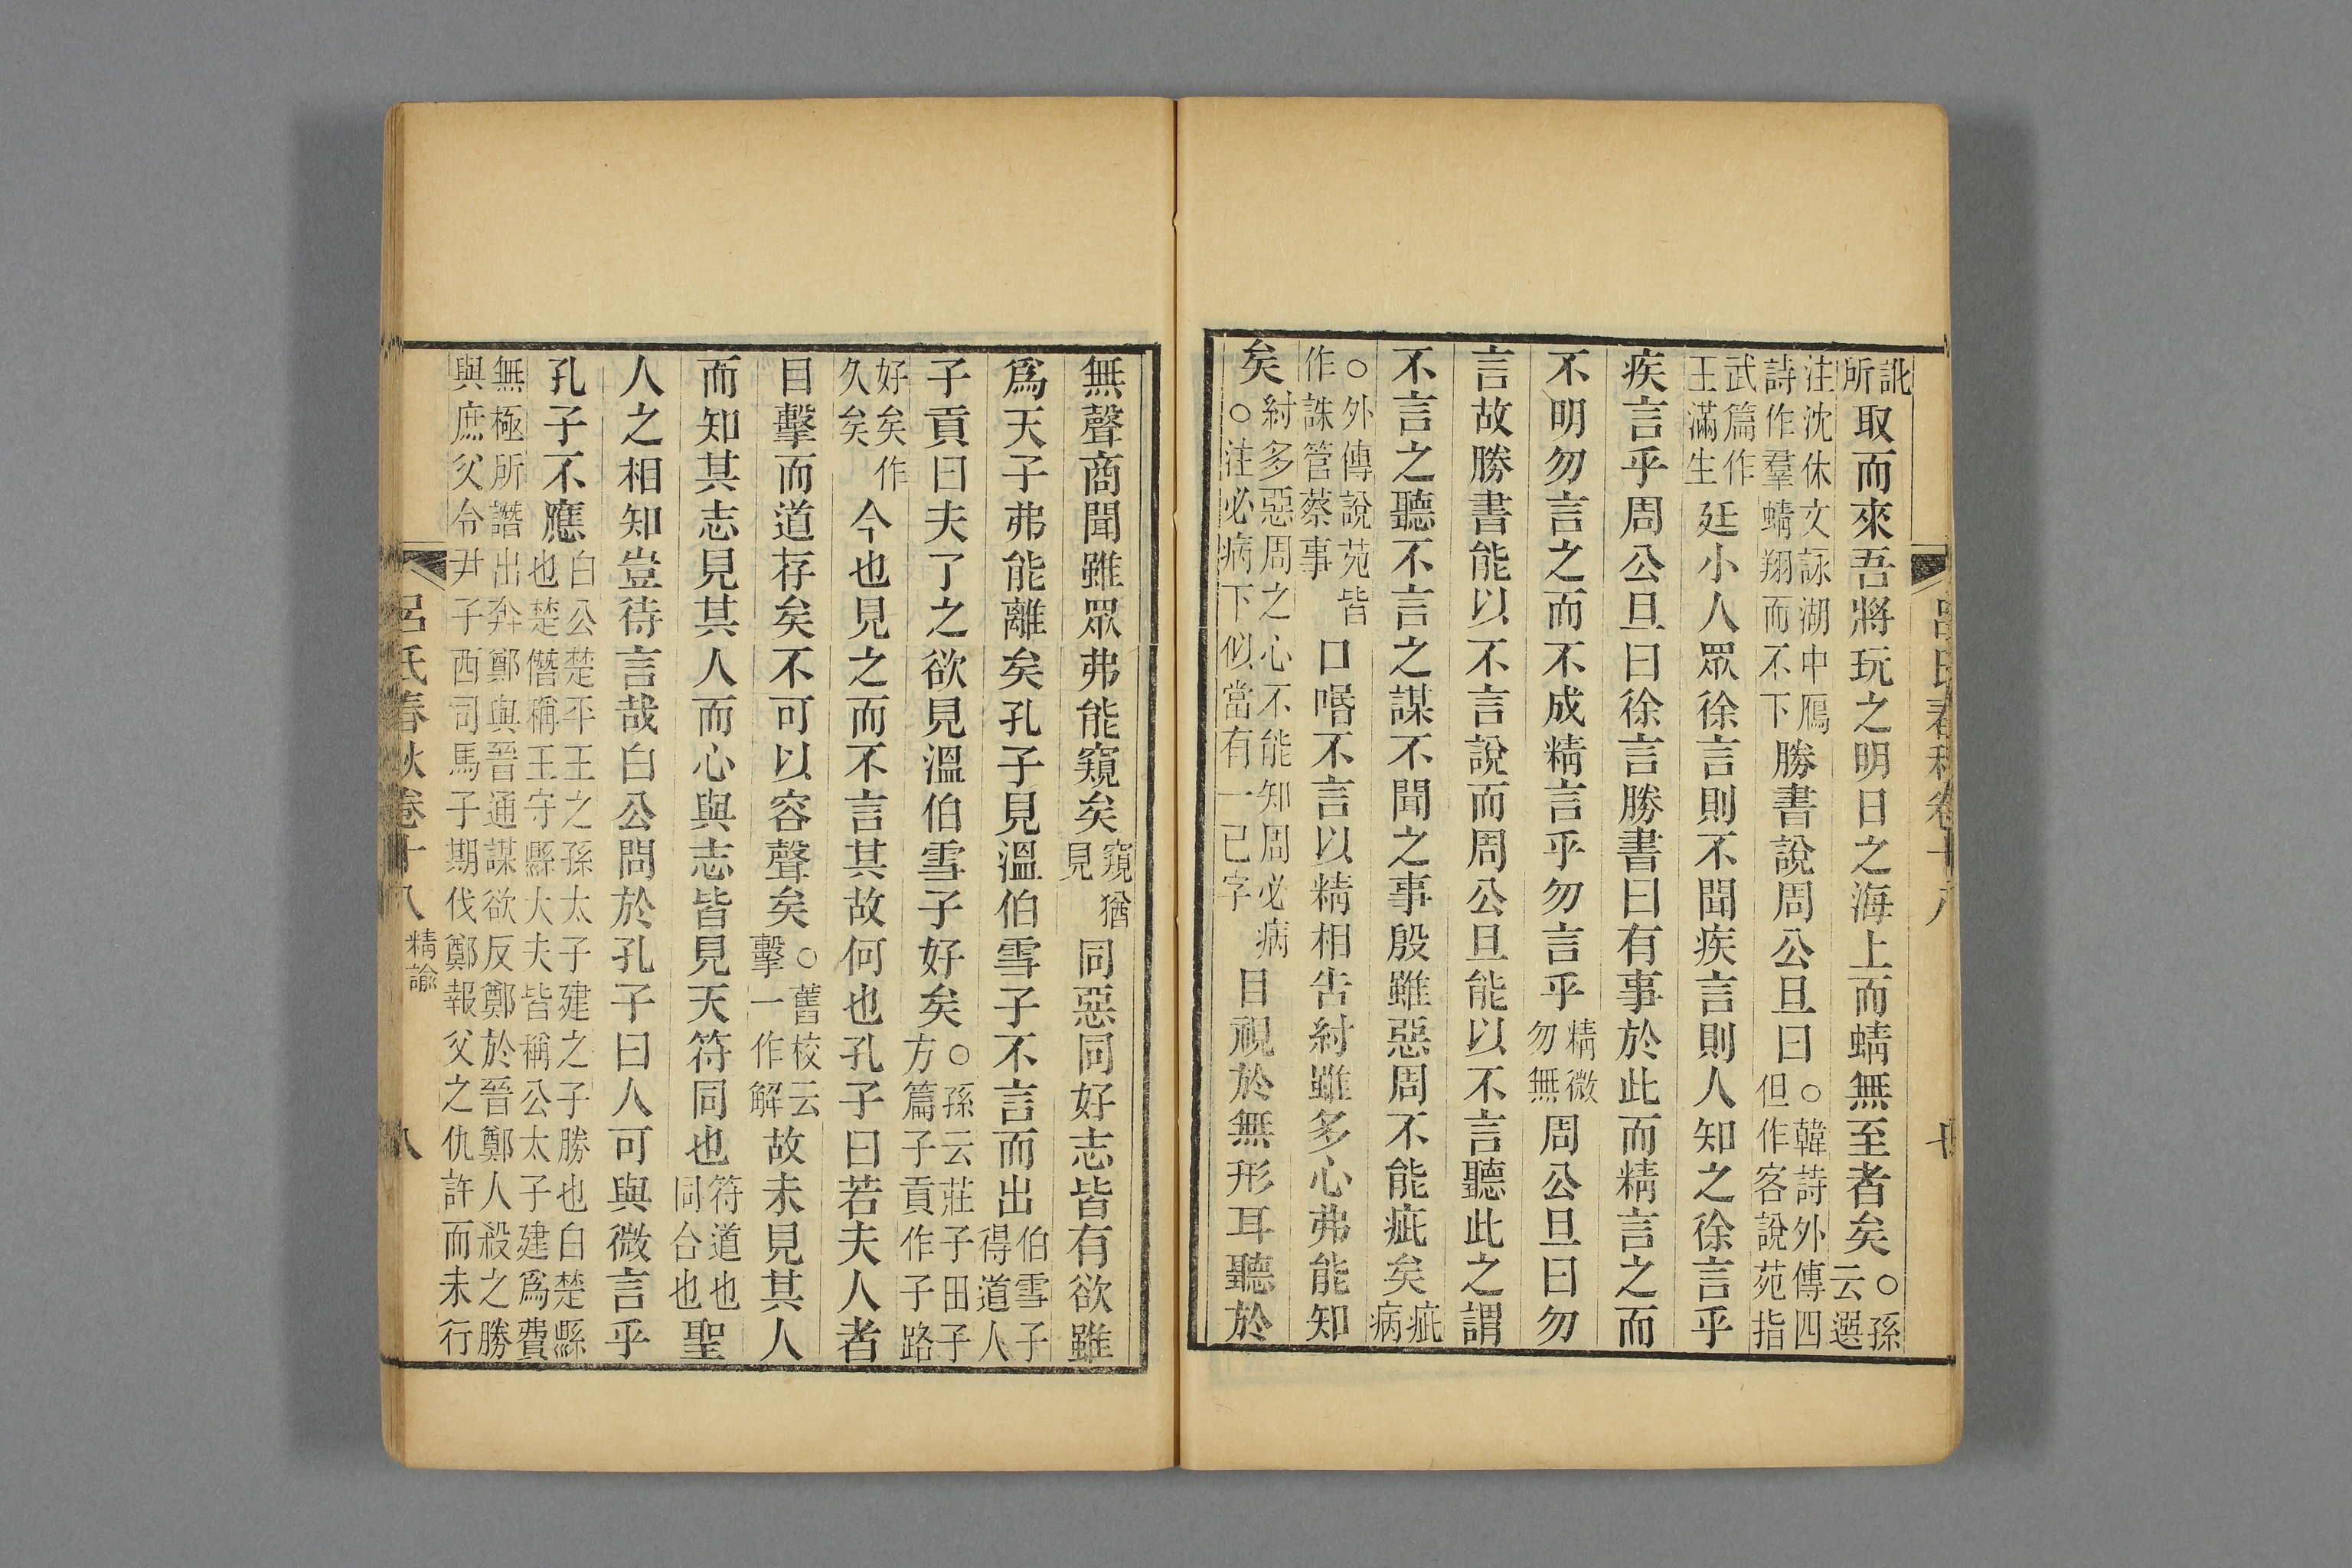 訛所取而來吾將玩之明日之海上而蜻無至者矣○孫云選
注沈休文詠湖中鴈詩作羣蜻翔而不下勝書說周公旦曰○韓詩外傳四但作客說苑指
武篇作王滿生廷小人眾徐言則不聞疾言則人知之徐言乎
疾言乎周公旦曰徐言勝書曰有事於此而精言之而
不明勿言之而不成精言乎勿言乎精微勿無周公旦曰勿
言故勝書能以不言說而周公旦能以不言聽此之謂
不言之聽不言之謀不聞之事殷雖惡周不能疵矣疵病
○外傳說苑皆作誅管蔡事口㖧不言以精相告紂雖多心弗能知
矣紂多惡周之心不能知周必病○注必病下似當有一已字目視於無形耳聽於
無聲商聞雖眾弗能窺矣窺猶見同惡同好志皆有欲雖
爲天子弗能離矣孔子見溫伯雪子不言而出伯雪子得道人
子貢曰夫了之欲見溫伯雪子好矣○孫云莊子田子方篇子貢作子路
好矣作久矣今也見之而不言其故何也孔子曰若夫人者
目擊而道存矣不可以容聲矣○舊校云擊一作解故未見其人
而知其志見其人而心與志皆見天符同也符道也同合也聖
人之相知豈待言哉白公問於孔子曰人可與微言乎
孔子不應白公楚平王之孫太子建之子勝也白楚縣也楚僭稱王守縣大夫皆稱公太子建爲費
無極所譖出奔鄭與晉通謀欲反鄭於晉鄭人殺之勝與庶父令尹子西司馬子期伐鄭報父之仇許而未行
呂氏春秋卷十八 精諭 八